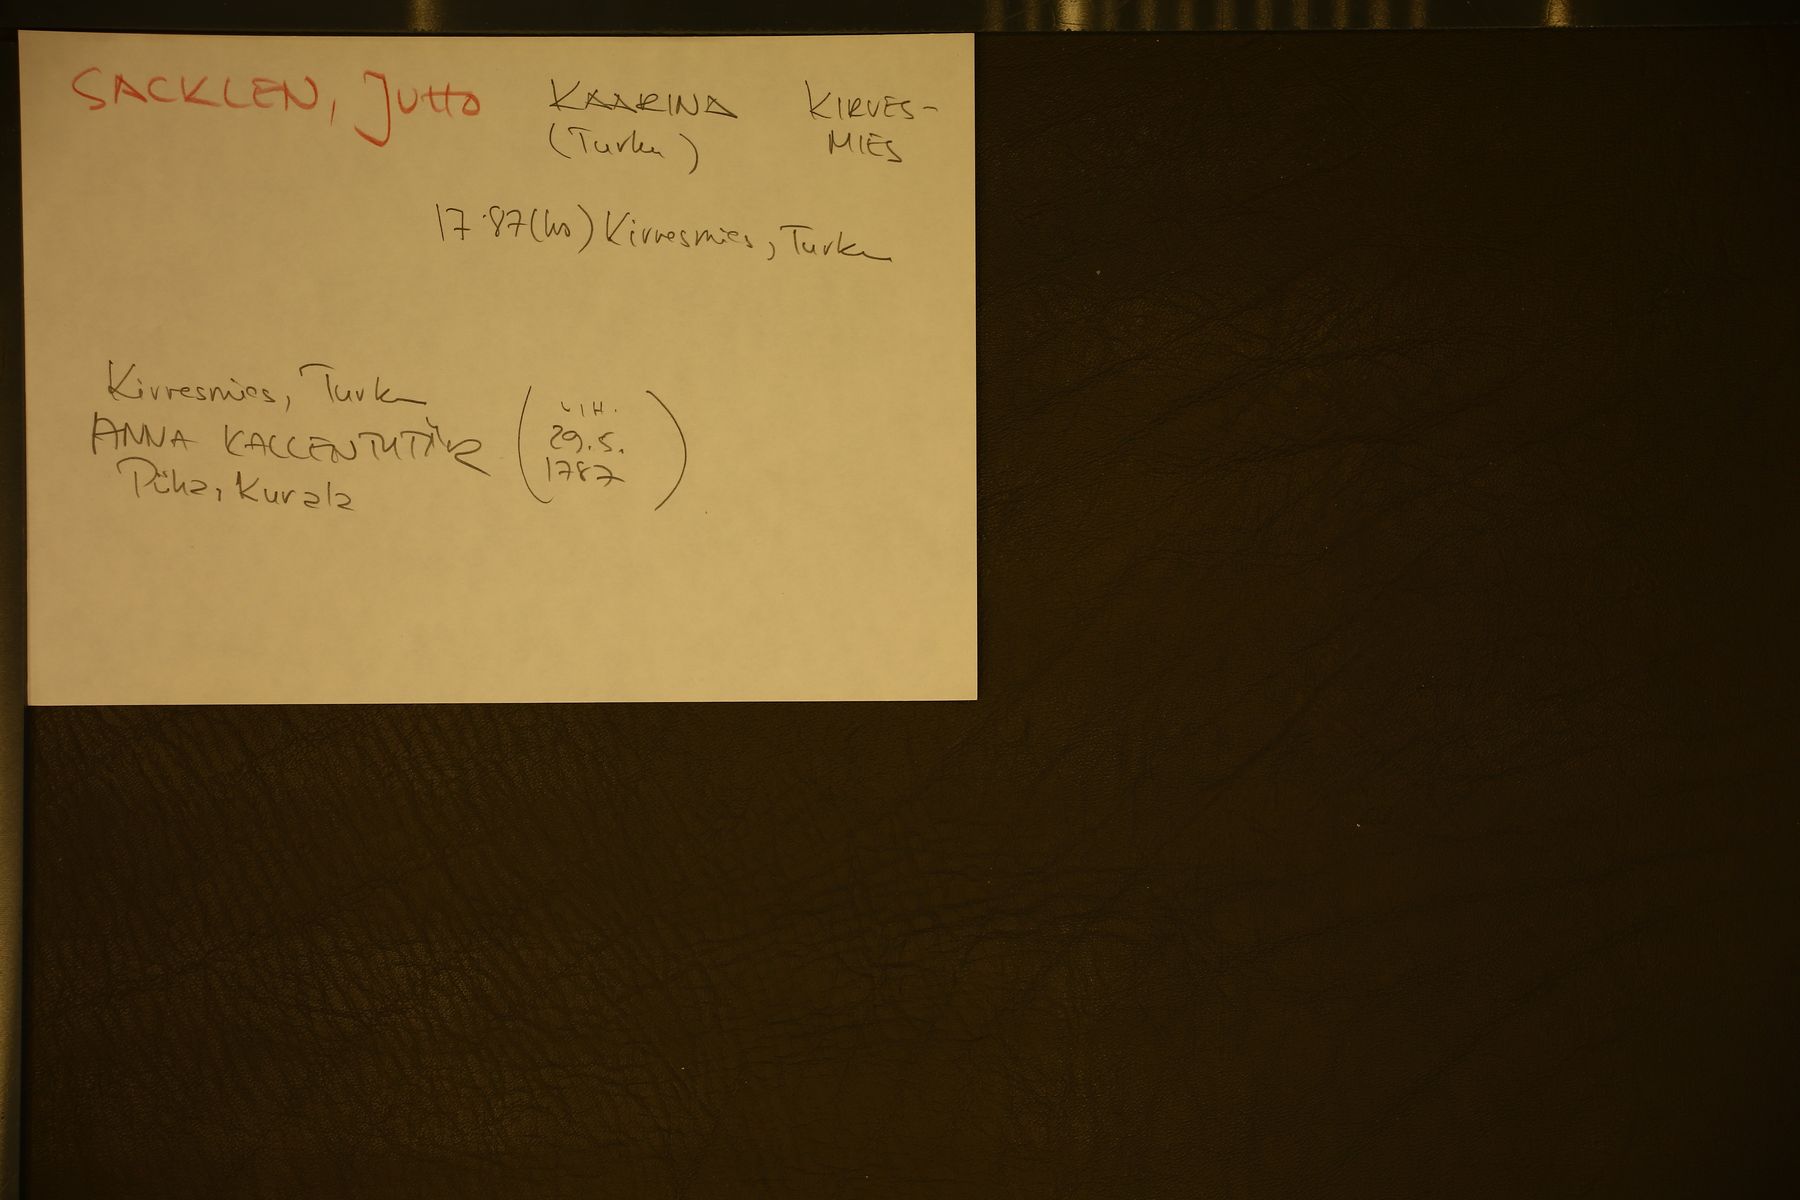 SACKLEN, Jutto KAARINA KIRVES-
(Turku) MIES
1787 (ho) Kirvesmies, Turku
Kirvesmies, Turku
ANNA KALLENTYTÄR
Piika, Kurala
(VIH.
29.5.
1787)